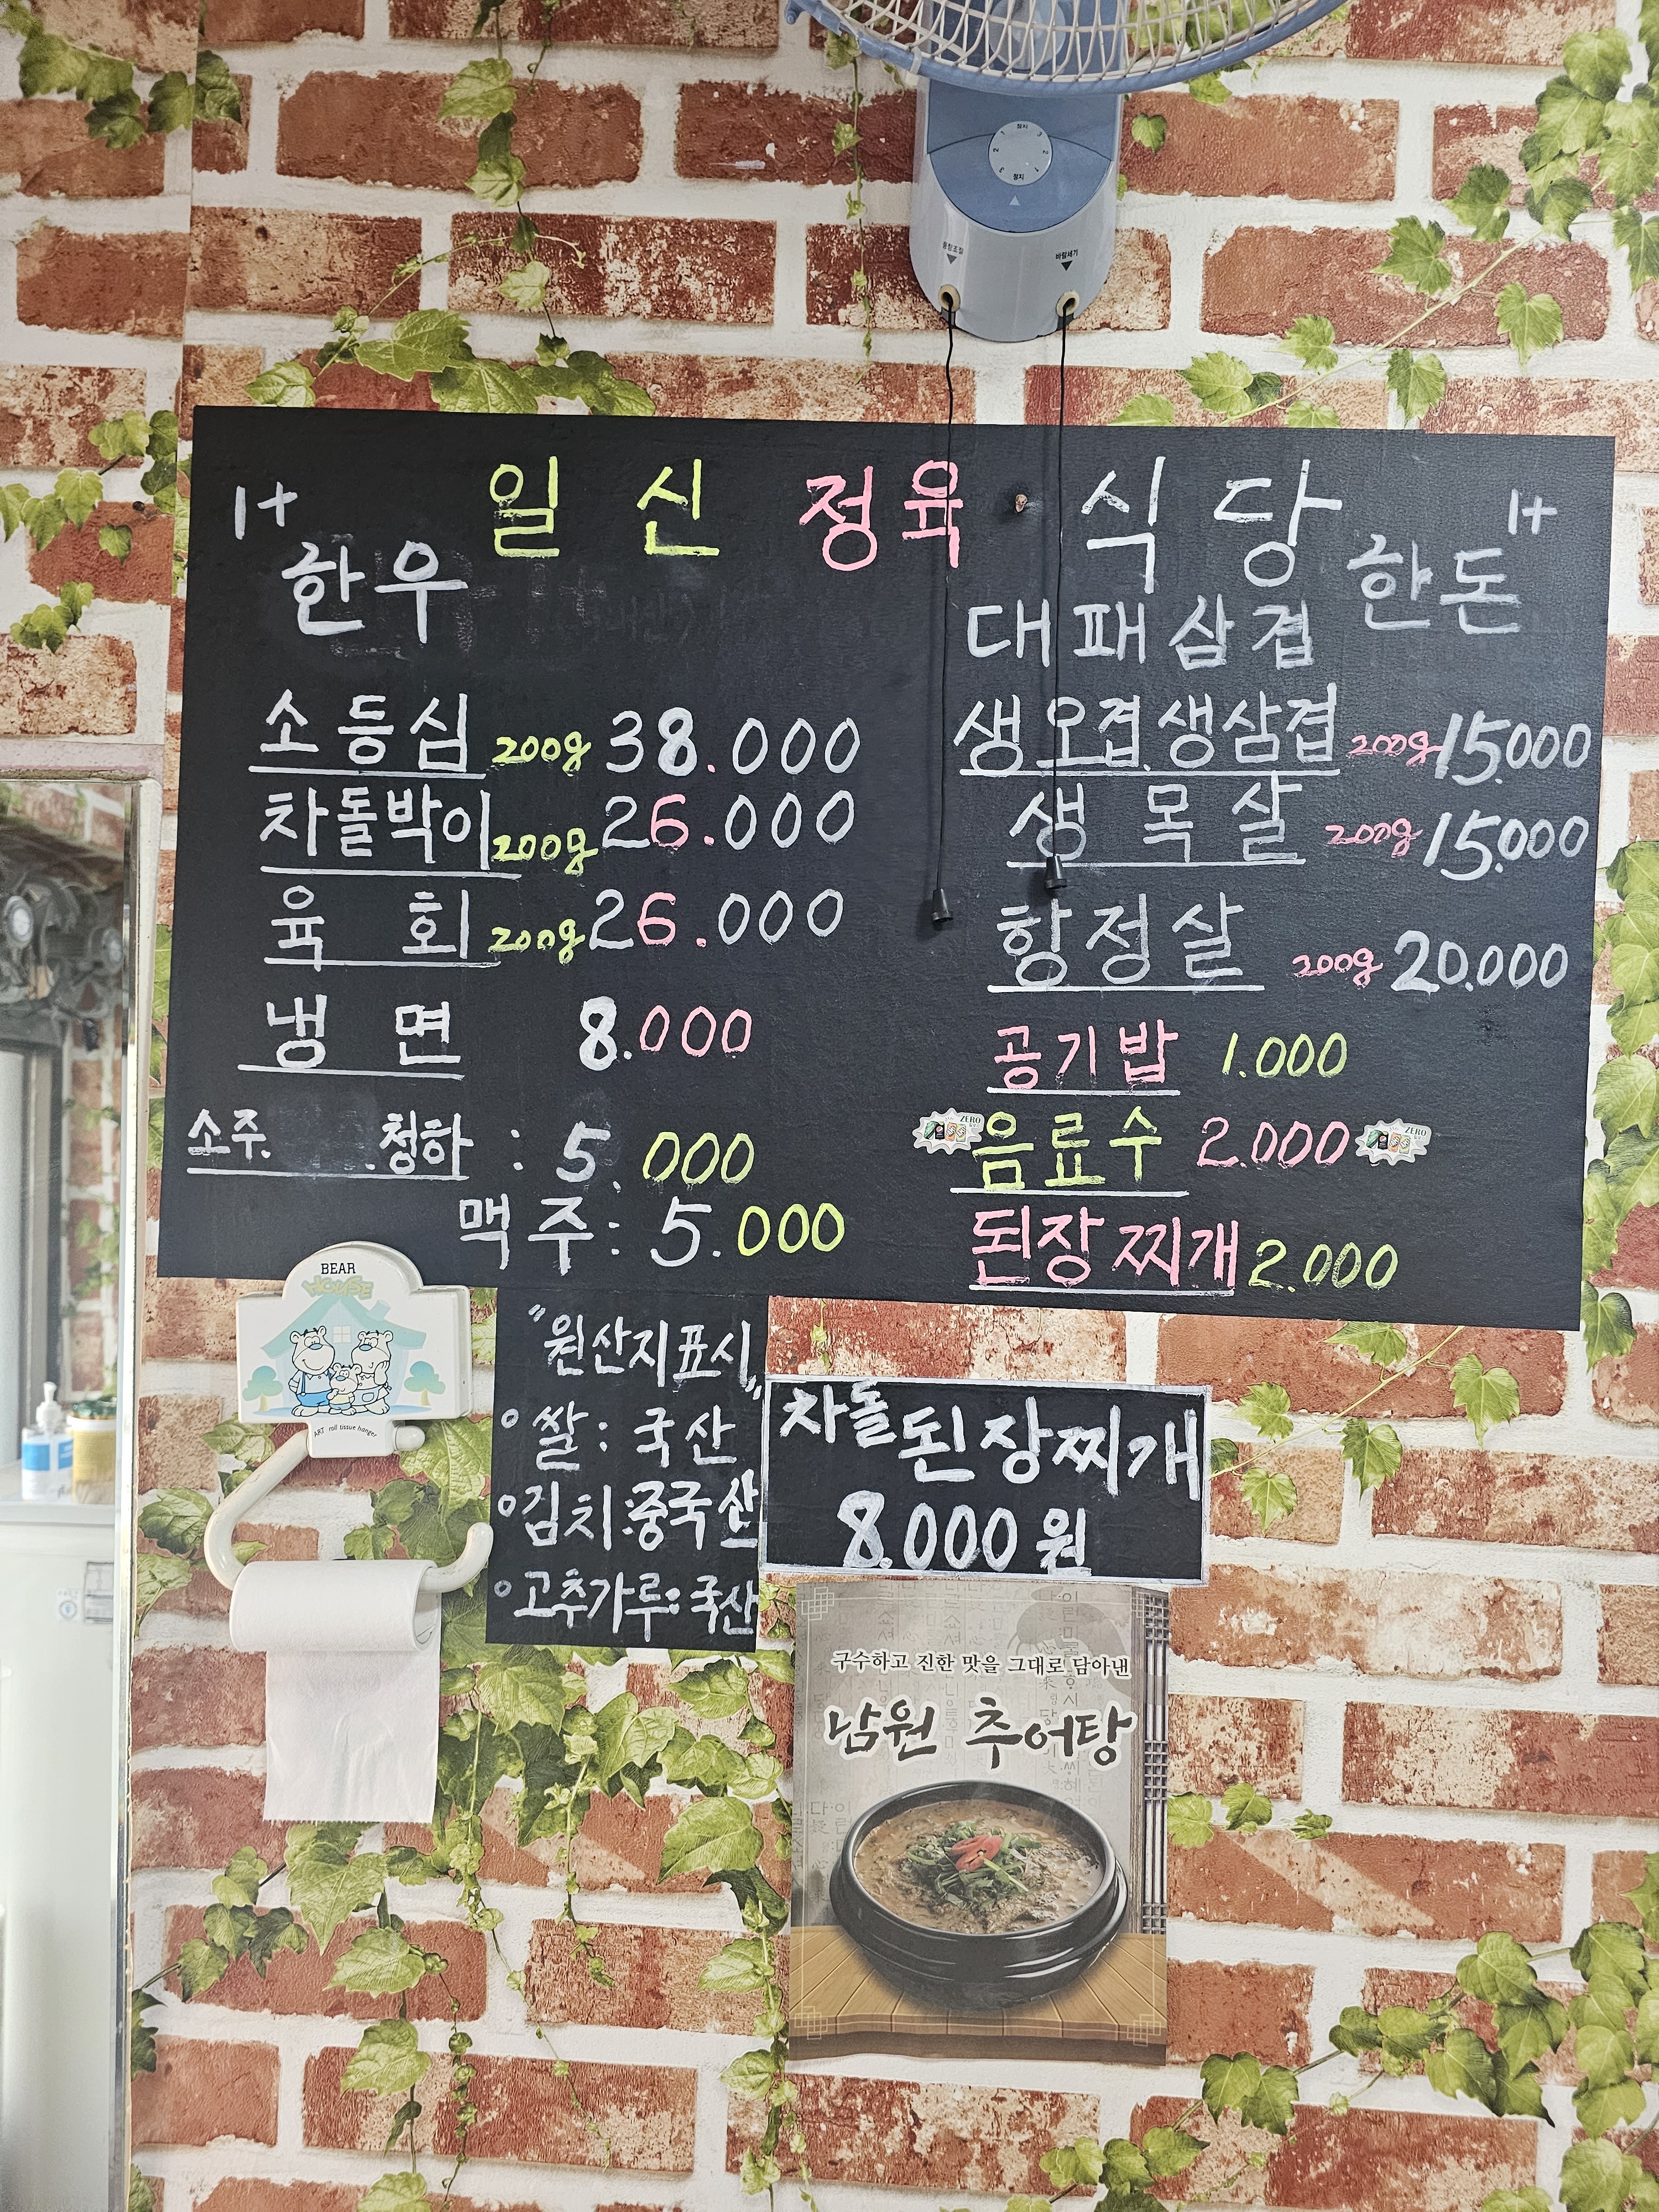 일신 정육 식당
1+ 한우
1+ 한돈
소등심 200g 38.000
차돌박이 200g 26.000
육회 200g 26.000
냉면 8.000
소주. .청하 : 5.000
맥주: 5.000
대패삼겹
생오겹.생삼겹 200g 15.000
생목살 200g 15.000
항정살 200g 20.000
공기밥 1.000
음료수 2.000
ZERO
ZERO
된장찌개 2.000
"원산지표시"
쌀: 국산
김치:중국산
고추가루: 국산
차돌된장찌개
8.000원
구수하고 진한 맛을 그대로 담아낸
남원 추어탕
BEAR
HOUSE
ART roll tissue hanger
정지
1 2 3
3 2 1
정지
풍향조절
바람세기